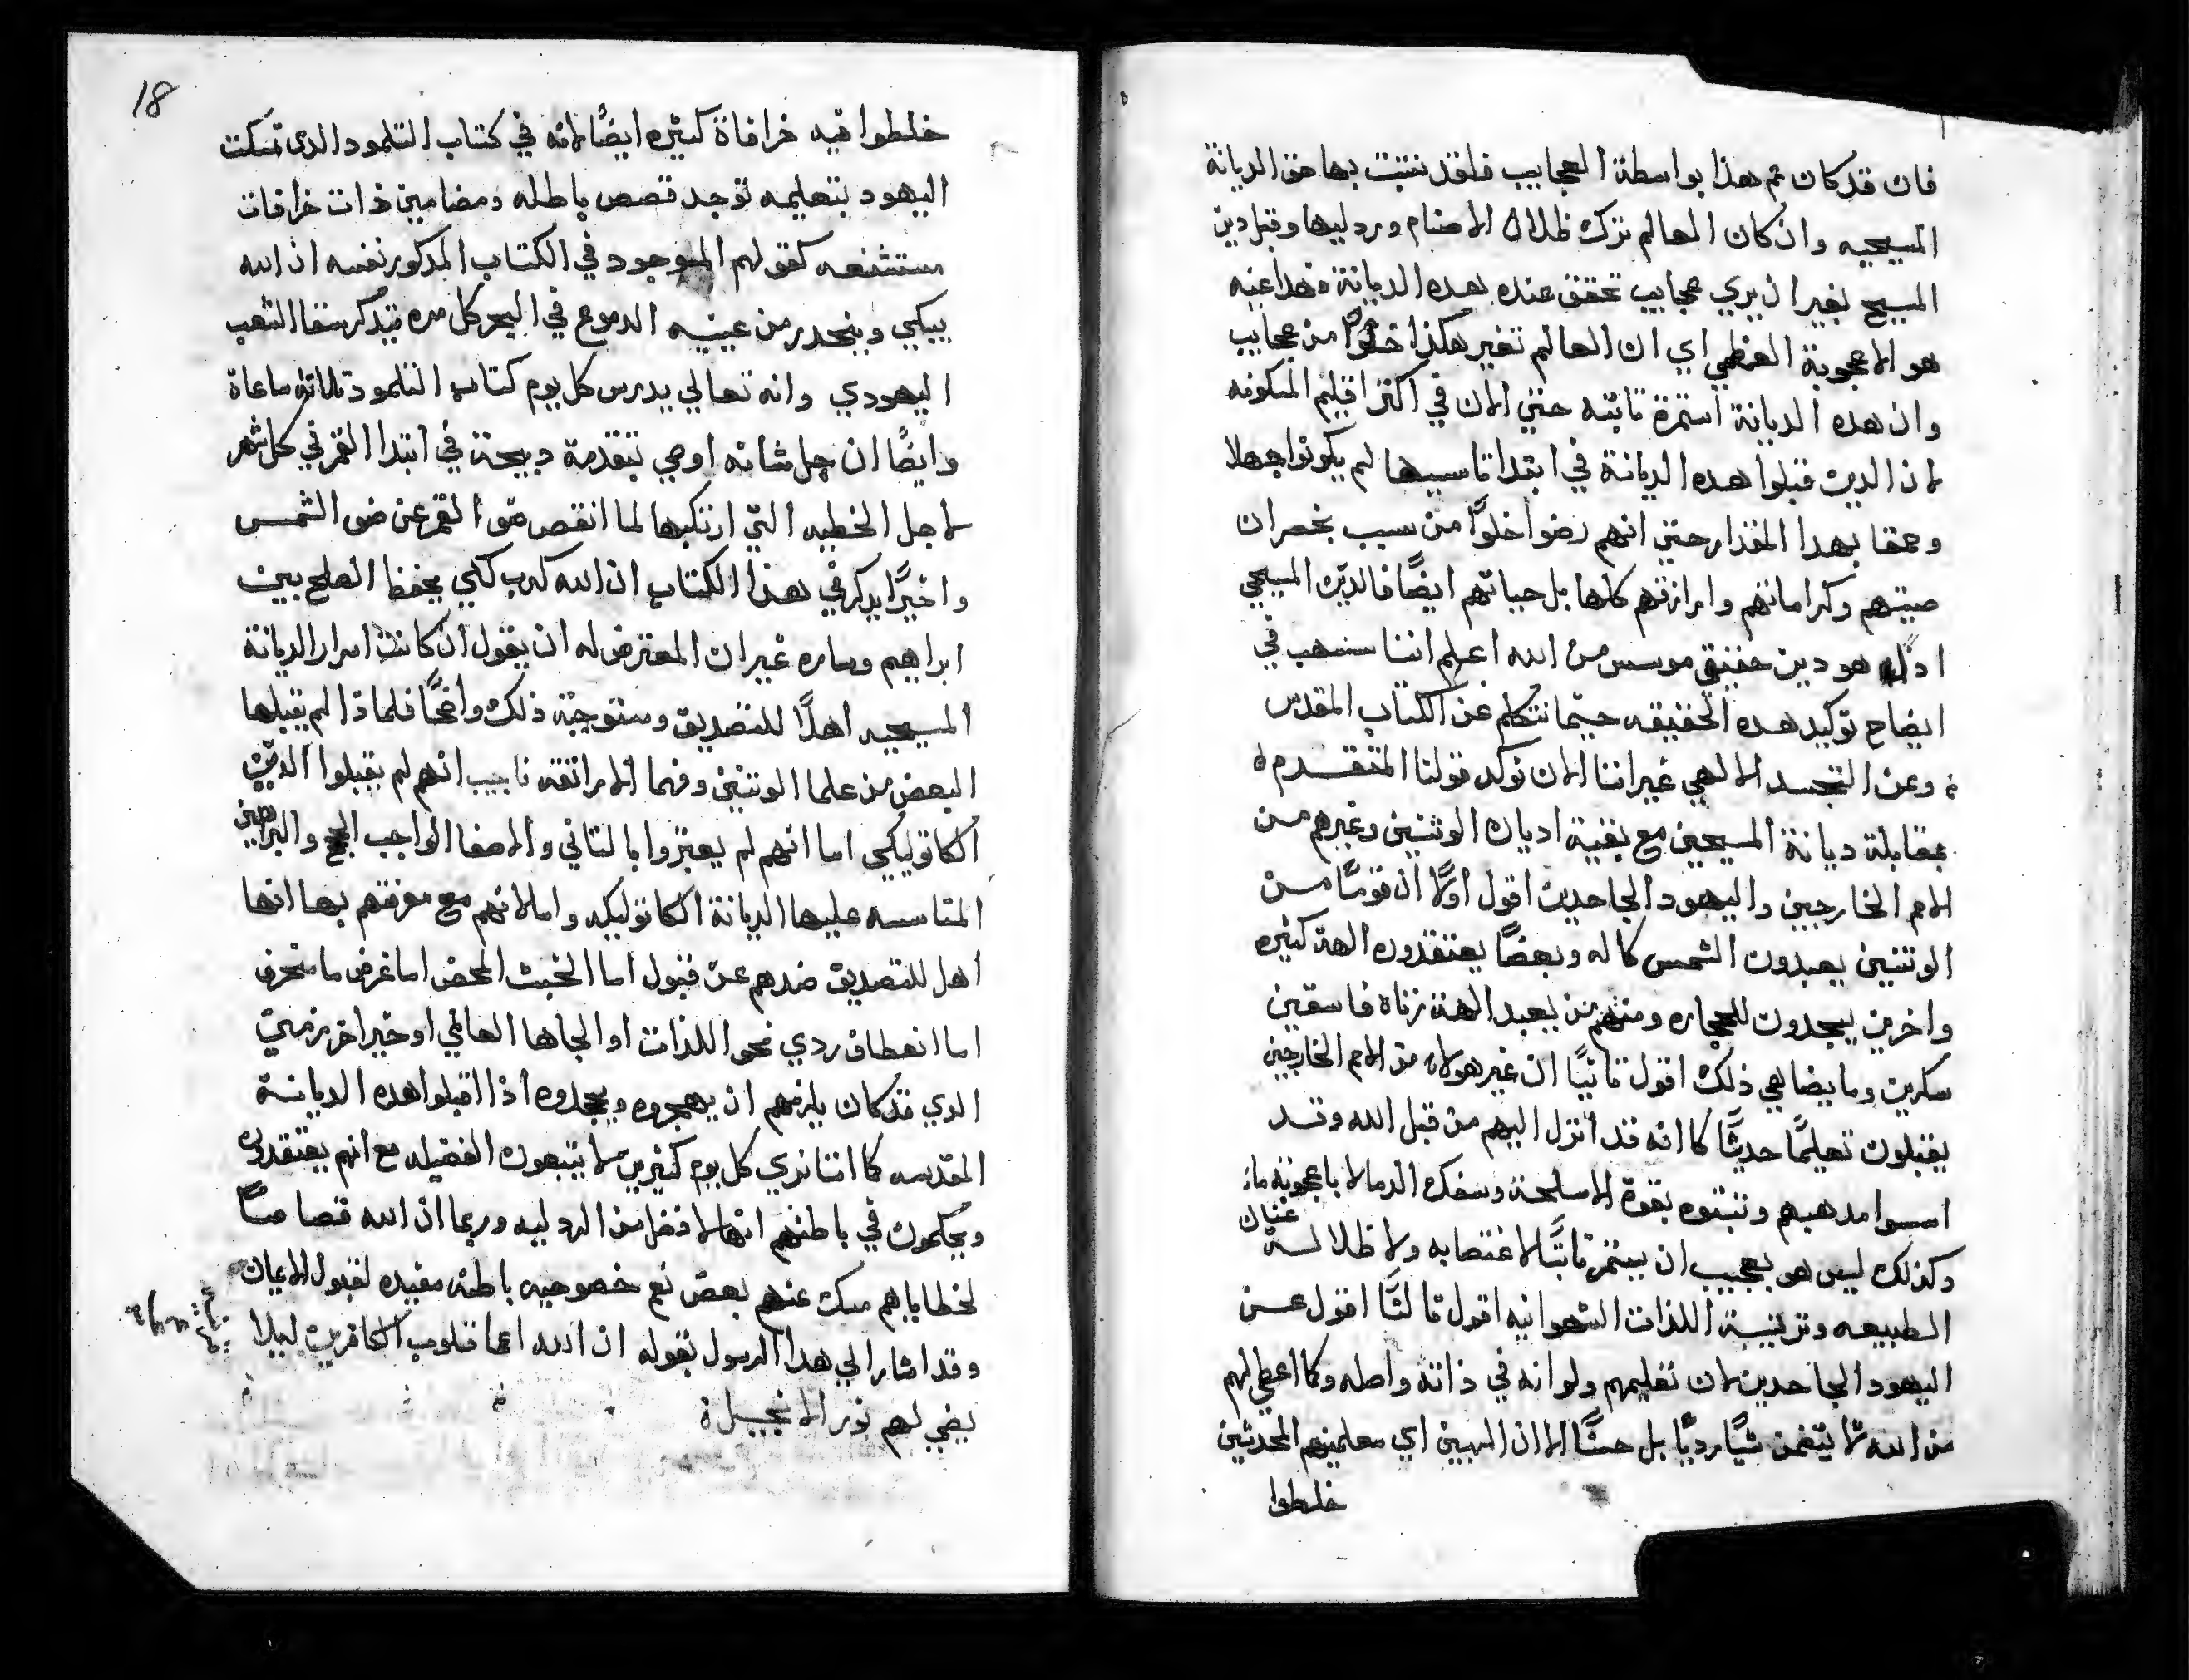 فان قد كان تم هذا بواسطة العجايب فلقد نتبت بها حق الديانة
المسيحيه وان كان العالم ترك ظلال الاصنام وردليها وقبل دين
المسيح بغير ان يري عجايب تحقق عنده هده الديانة فهدا عينه
هو الاعجوبة العظمي اي ان العالم تغير هكذا خلوًا من عجايب
وان هده الديانة استمرة تابته حتي الان في اكثر اقليم المسكونه
لان الدين قبلوا هده الديانة في ابتدا تاسيسها لم يكونوا جهلا
وحمقا بهدا المقدار حتي انهم رضوا خلوًا من سبب بخسران
صيتهم وكراماتهم وارازقهم كلها بل حياتهم ايضًا فالدين المسيحي
ادًا هو دين حقيقي موسس من الله اعلم اننا سنسهب في
ايضاح توكيد هده الحقيقه حيتما نتكلم عن الكتاب المقدس
وعن التجسد الالهي غير اننا الان نوكد قولنا المتقدم
بمقابلة ديانة المسيحين مع بقية اديان الوثنين وغيرهم من
الامم الخارجين واليهود الجاحدين اقول اولًا ان قومًا من
الوتنين يعبدون الشمس كاله وبعضًا يعتقدون الهة كثيره
واخرين يسجدون للحجاره ومنهم من يعبد الهة زناة فاسقين
سكرين وما يضاهي ذلك اقول تانيًا ان غير هولاء من الامم الخارجين
يقبلون تعليمًا حديثًا كانه قد انزل اليهم من قبل الله وقد
اسسوا مدهبهم وتبتوه بقوة الاسلحة وسفك الدما لا باعجوبة ما
وكذلك ليس هو بعجيب ان يستمر تابتًا لاغتصابه ولاظلالسة عنان
الطبيعه وترغيبة اللذات الشهوانيه اقول تالتًا اقول عن
اليهود الجاحدين لان تعليمهم ولو انه في ذاته واصله وكما اعطي لهم
من الله لا يتضمن شيًا رديًا بل حسنًا الا ان الربيين اي معلمينهم المحدثين
خلطوا
18
خلطوا فيه خرافاة كثيره ايضًا لانه في كتاب التلمود الدى تمسكت
اليهود بتعليمه توجد قصص باطله ومضامين ذات خرافات
مستشنعه كقولهم الموجود في الكتاب المدكور نفسه ان الله
يبكي وينحدر من عينيه الدموع في البحر كل مره يتدكر شقا الشعب
اليهودي وانه تعالي يدرس كل يوم كتاب التلمود تلاتة ساعاة
وايضًا ان جل شانه اوصي بتقدمة دبيحة في ابتدا القمر في كل شهر
لاجل الخطيه التي ارتكبها لما انقص ضو القمر عن ضو الشمس
واخيرًا يدكر في هذا الكتاب ان الله كدب لكي يحفظ الصلح بين
ابراهيم وساره غير ان المعترض له ان يقول ان كانت اسرار الديانة
المسيحيه اهلًا للتصديق ومستوجبة ذلك واضحًا فلماذا لم يقبلها
البعض من علما الوتنين وفهما الاراتقه نا جيب انهم لم يقبلوا الدين
الكاتوليكي اما انهم لم يعتبروا بالتاني والاصغا الواجب الحجج والبراهين
المتاسسه عليها الديانة الكاتوليكه واما لانهم مع معرفتهم بها انها
اهل للتصديق ضدهم عن قبول اما الخبث المحض اما غرض ما منحرف
اما انعطاف ردي نحو اللذات او الجاها العالمي او خير اخر زمني
الدي قد كان يلزمهم ان يهجروه ويجحدوه اذا اقبلوا هده الديانة
المقدسه كما اننا نري كل يوم كثيرين لا يتبعون الفضيله مع انهم يعتقدون
ويحكمون في باطنهم انها لافضل من الردليه وربما ان الله قصاصًا
لخطاياهم مسك عنهم بعض نعم خصوصيه باطنه مفيده لقبول الايمان
وقد اشار الي هدا الرسول بقوله ان الله اعما قلوب الكافرين ليلا
يضي لهم نور الانجيل